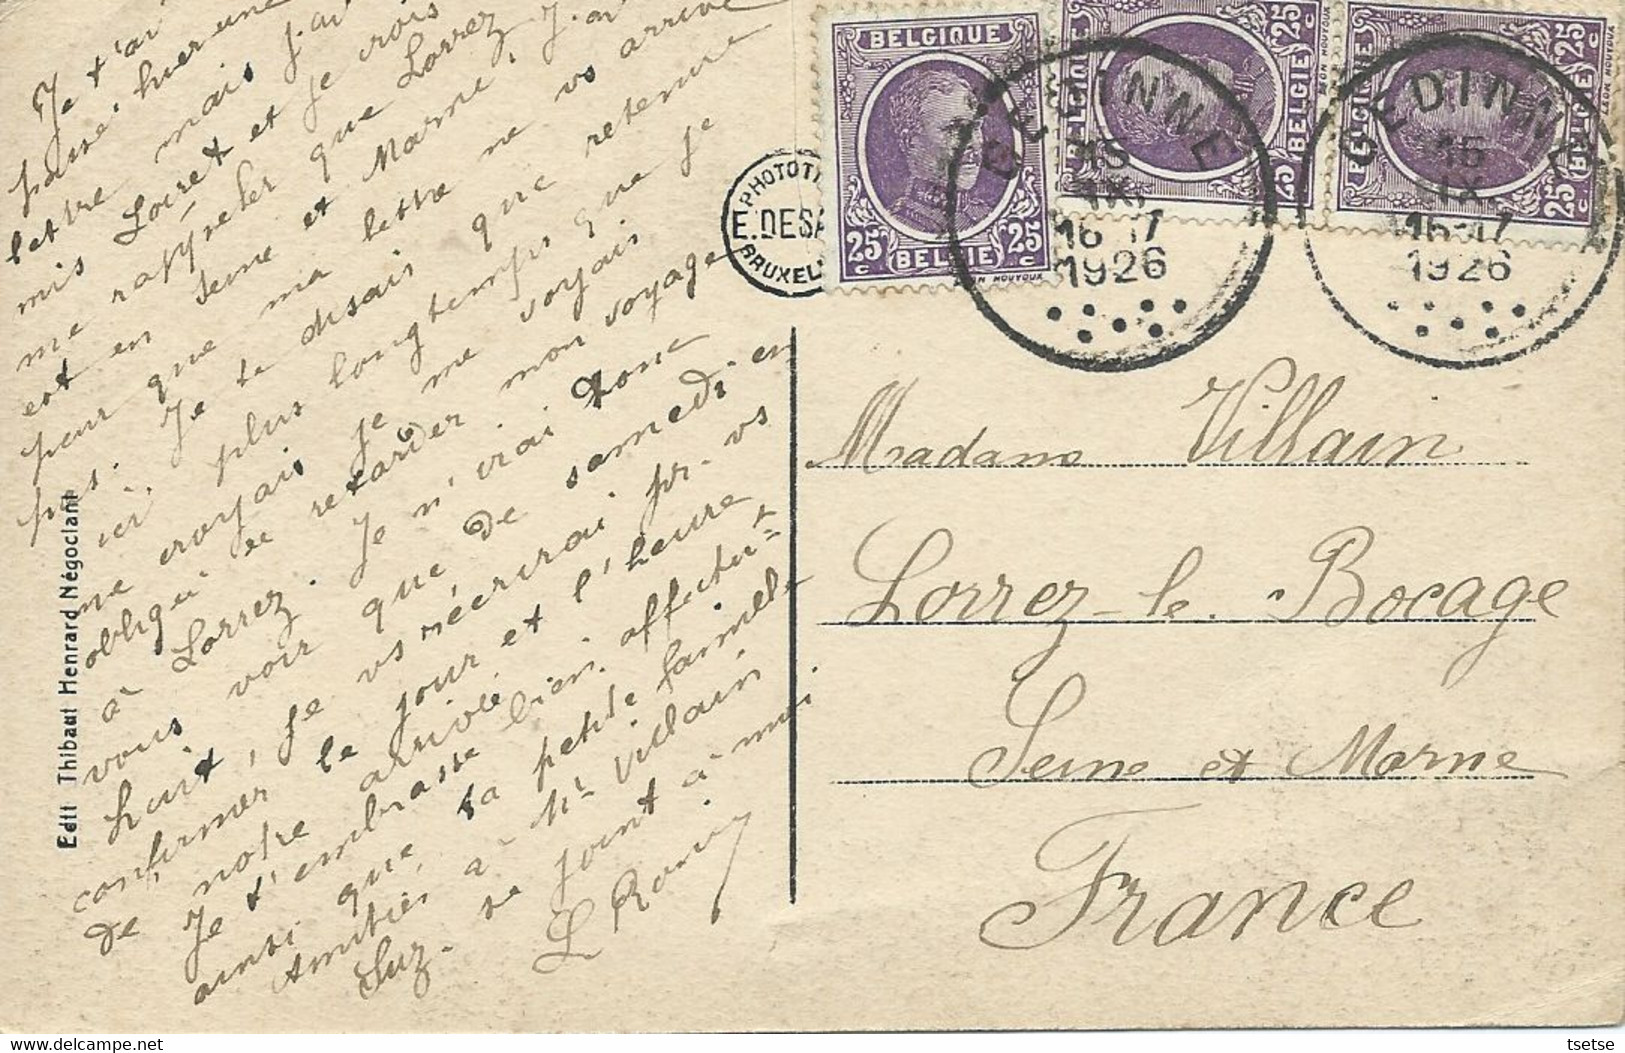 Je t'ai
passé hier une
lettre mais j'ai
mis Loiret et je crois
me rappeler que Lorrez
est en Seine et Marne, j'ai
peur que ma lettre ne vs arrive
pas. Je te disais que retenue
ici plus longtemps que je
ne croyais je me voyais
obligée de retarder mon voyage
à Lorrez. Je n'irai donc
vous voir que de samedi en
huit, je vs récrirai pr. vs
confirmer le jour et l'heure
de notre arrivée
Je t'embrasse bien affectu-t
ainsi que ta petite famille
Amitiés à Mr Villain
Suz. se joint à moi
L
Edit Thibaut Henrard Négociant
PHOTOT
E.DESA
BRUXEL
BELGIQUE
25c 25c
BELGIË
BELGIQUE
25c 25c
BELGIE
BELGIQUE
25c 25c
BELGIE
GEDINNE
15
IX
16-17
1926
GEDINNE
15
IX
16-17
1926
Madame Villain
Lorrez-le-Bocage
Seine et Marne
France
tsetse